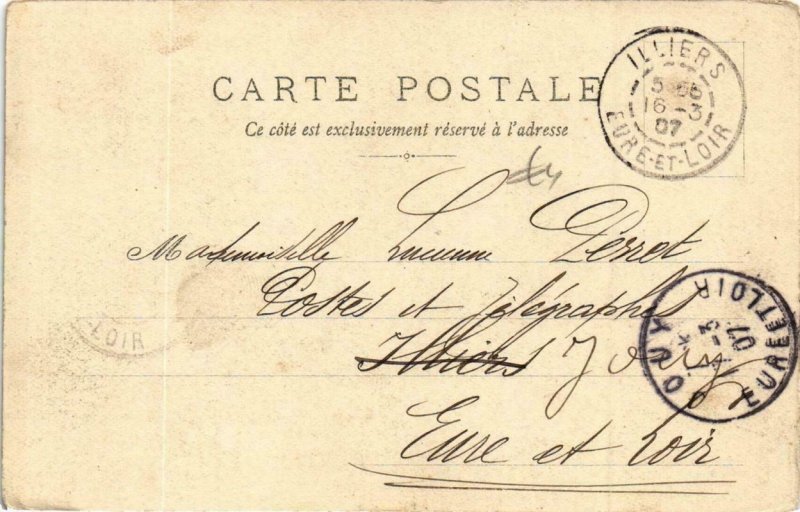 CARTE POSTALE
Ce côté est exclusivement réservé à l'adresse
ILLIERS
16 -3
07
EURE-ET-LOIR
Mademoiselle Lucienne Perret
Postes et Télégraphes
Illiers Jouy
Eure et Loir
JOUY
-3
07
EURE ET LOIR
LOIR